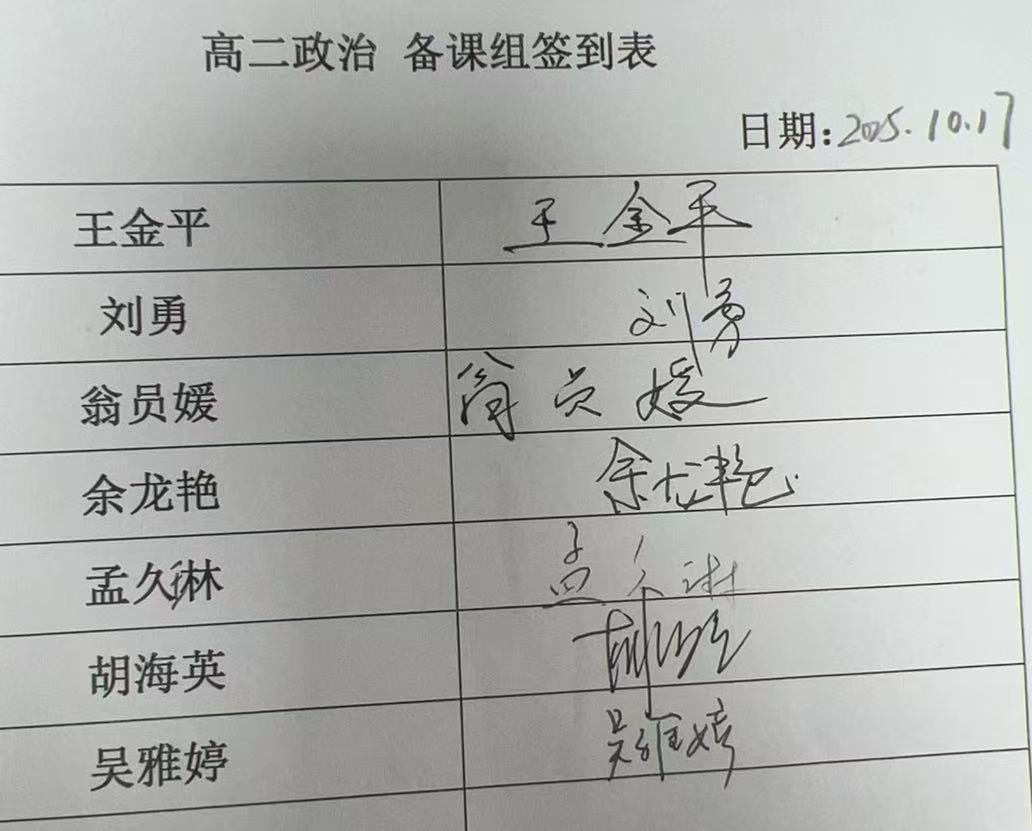 高二政治 备课组签到表
日期:2025.10.17
王金平 王金平
刘勇 刘勇
翁员媛 翁员媛
余龙艳 余龙艳
孟久淋 孟久淋
胡海英 胡海英
吴雅婷 吴雅婷